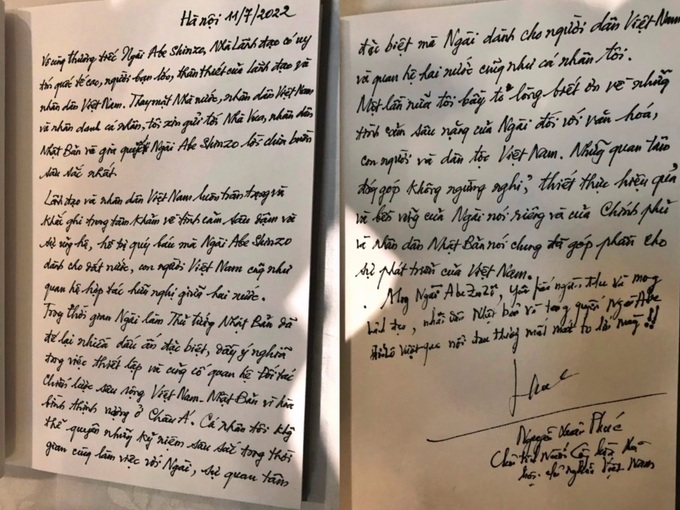 Hà Nội 11/7/2022
Vô cùng thương tiếc Ngài Abe Shinzo, Nhà Lãnh đạo có uy
tín quốc tế cao, người bạn lớn, thân thiết của Lãnh đạo và
nhân dân Việt Nam. Thay mặt Nhà nước, nhân dân Việt Nam
và nhân danh cá nhân, tôi xin gửi tới Nhà Vua, nhân dân
Nhật Bản và gia quyến Ngài Abe Shinzo lời chia buồn
sâu sắc nhất.
Lãnh đạo và nhân dân Việt Nam luôn trân trọng và
khắc ghi trong tâm khảm về tình cảm sâu đậm và
sự ủng hộ, hỗ trợ quý báu mà Ngài Abe Shinzo
dành cho đất nước, con người Việt Nam cũng như
quan hệ hợp tác hữu nghị giữa hai nước.
Trong thời gian Ngài làm Thủ tướng Nhật Bản đã
để lại nhiều dấu ấn đặc biệt, đầy ý nghĩa
trong việc thiết lập và củng cố quan hệ Đối tác
Chiến lược sâu rộng Việt Nam - Nhật Bản vì hòa
bình thịnh vượng ở Châu Á. Cá nhân tôi không
thể quên những kỷ niệm sâu sắc trong thời
gian cùng làm việc với Ngài, sự quan tâm
đặc biệt mà Ngài dành cho người dân Việt Nam
và quan hệ hai nước cũng như cá nhân tôi.
Một lần nữa tôi bày tỏ lòng biết ơn về những
tình cảm sâu nặng của Ngài đối với văn hóa,
con người và dân tộc Việt Nam. Những quan tâm
đóng góp không ngừng nghỉ, thiết thực hiệu quả
và bền vững của Ngài nói riêng và của Chính phủ
và Nhân dân Nhật Bản nói chung đã góp phần cho
sự phát triển của Việt Nam.
Mong Ngài Abe yên nghỉ ngàn thu và mong
Lãnh đạo, nhân dân Nhật Bản và tang quyến Ngài Abe
sớm vượt qua nỗi đau thương mất mát to lớn này!!
Nguyễn Xuân Phúc
Chủ tịch Nước Cộng hòa Xã
hội chủ nghĩa Việt Nam